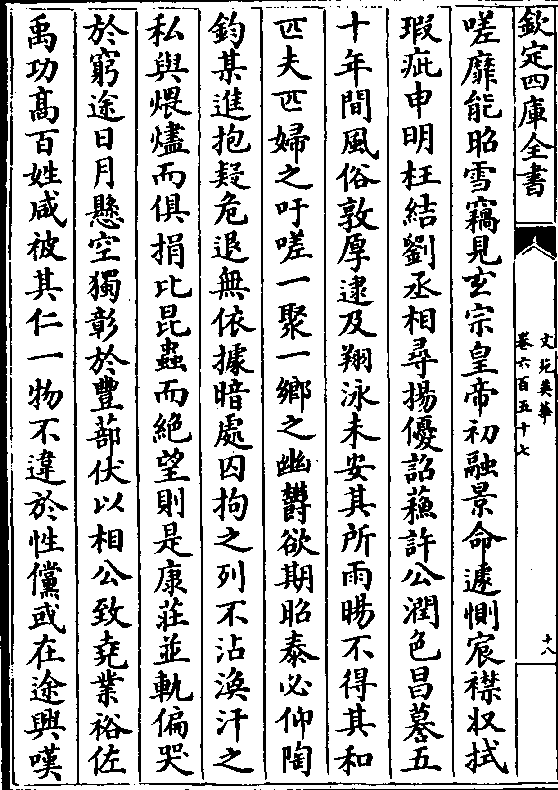 欽定四庫全書
文苑英華
卷六百五十七
十八
嗟靡能昭雪竊見玄宗皇帝初融景命遽惻宸襟收拭
瑕疵申明枉結劉丞相尋揚優詔蘓許公潤色昌謩五
十年間風俗敦厚逮及翔泳未安其所雨暘不得其和
匹夫匹婦之吁嗟一聚一鄉之幽欝欲期昭泰必仰陶
鈞某進抱疑危退無依據暗處囚拘之列不沾渙汗之
私與煨燼而俱捐比昆蟲而絶望則是康莊並軌偏哭
於窮途日月懸空獨彰於豐蔀伏以相公致堯業裕佐
禹功髙百姓咸被其仁一物不違於性儻或在途興嘆